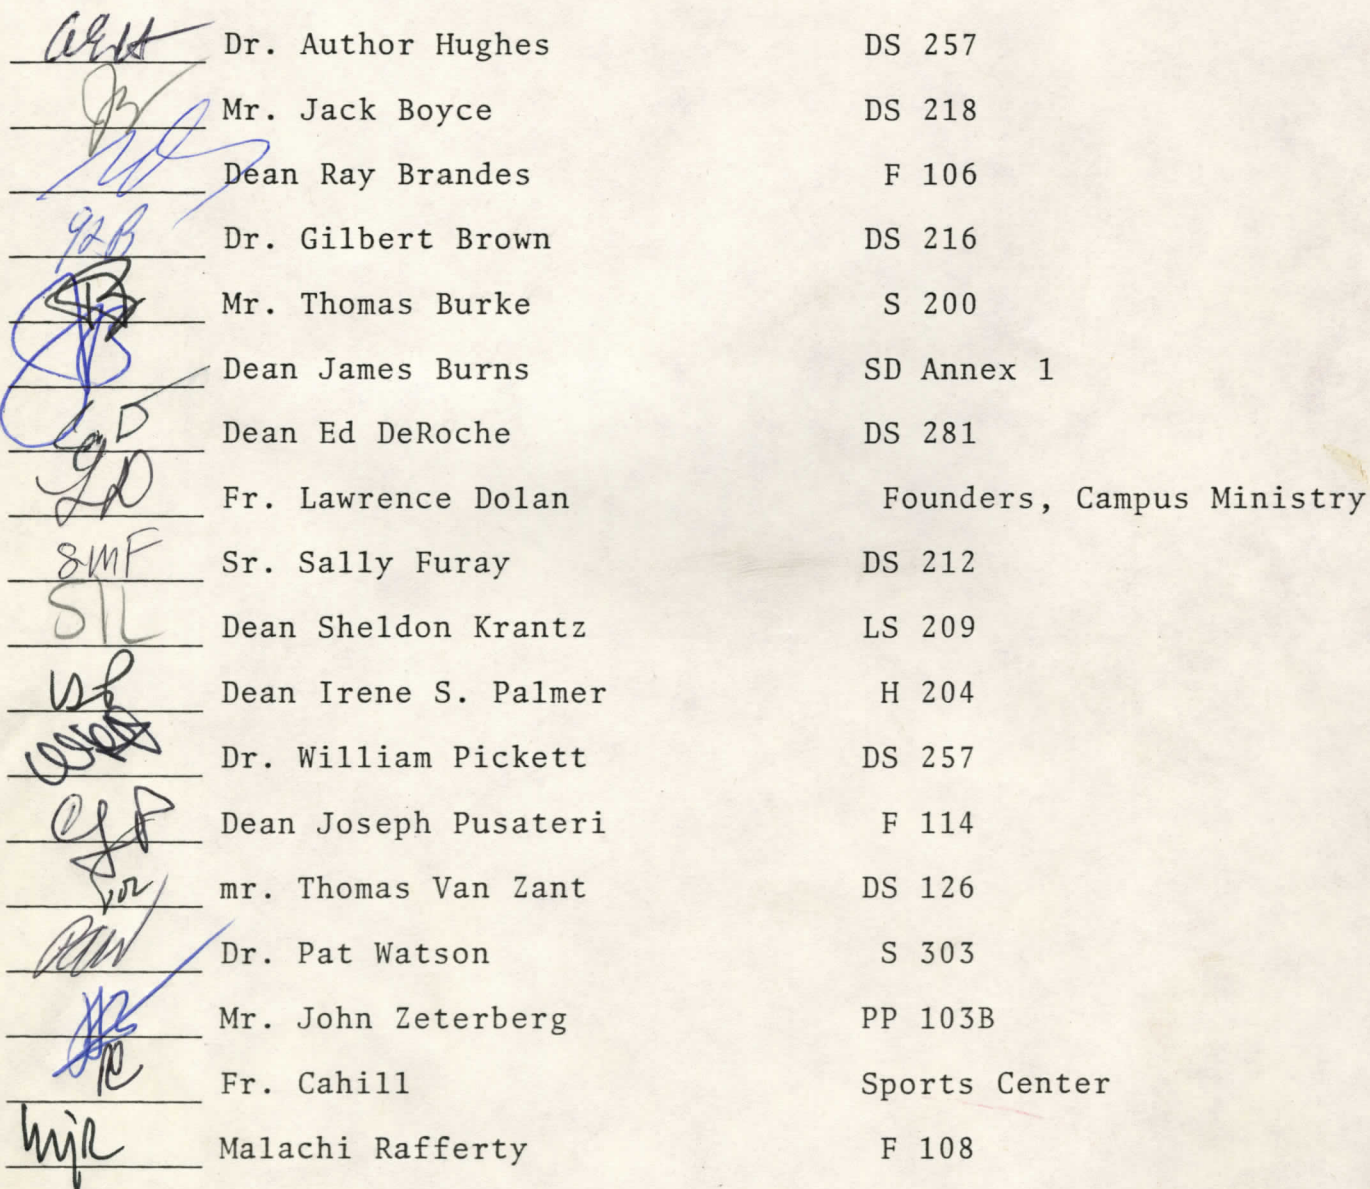 AEH Dr. Author Hughes DS 257
JB Mr. Jack Boyce DS 218
Dean Ray Brandes F 106
Dr. Gilbert Brown DS 216
TB Mr. Thomas Burke S 200
JB Dean James Burns SD Annex 1
Dean Ed DeRoche DS 281
LD Fr. Lawrence Dolan Founders, Campus Ministry
SMF Sr. Sally Furay DS 212
Dean Sheldon Krantz LS 209
ISP Dean Irene S. Palmer H 204
Dr. William Pickett DS 257
CJP Dean Joseph Pusateri F 114
mr. Thomas Van Zant DS 126
PAW Dr. Pat Watson S 303
JZ Mr. John Zeterberg PP 103B
Fr. Cahill Sports Center
MJR Malachi Rafferty F 108